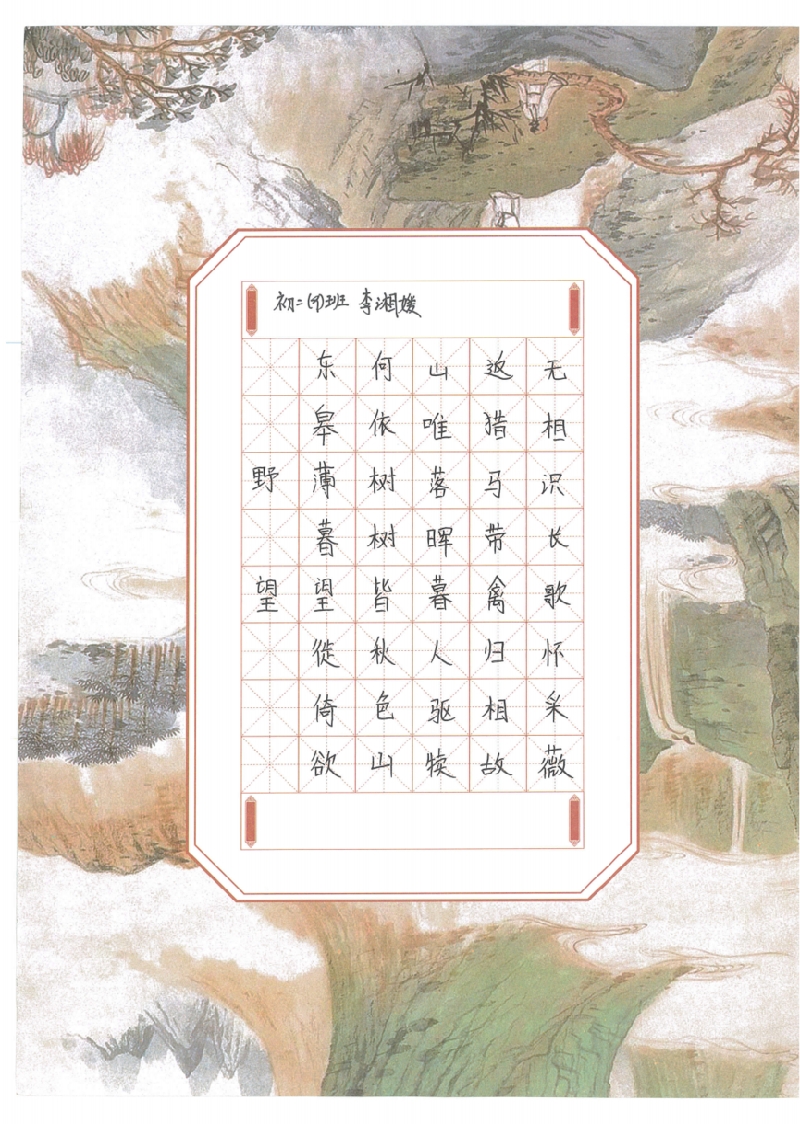 初二(9)班 李湘媛
野望
东皋薄暮望徙倚欲
何依树树皆秋色山
山唯落晖暮人驱犊
返猎马带禽归相故
无相识长歌怀采薇